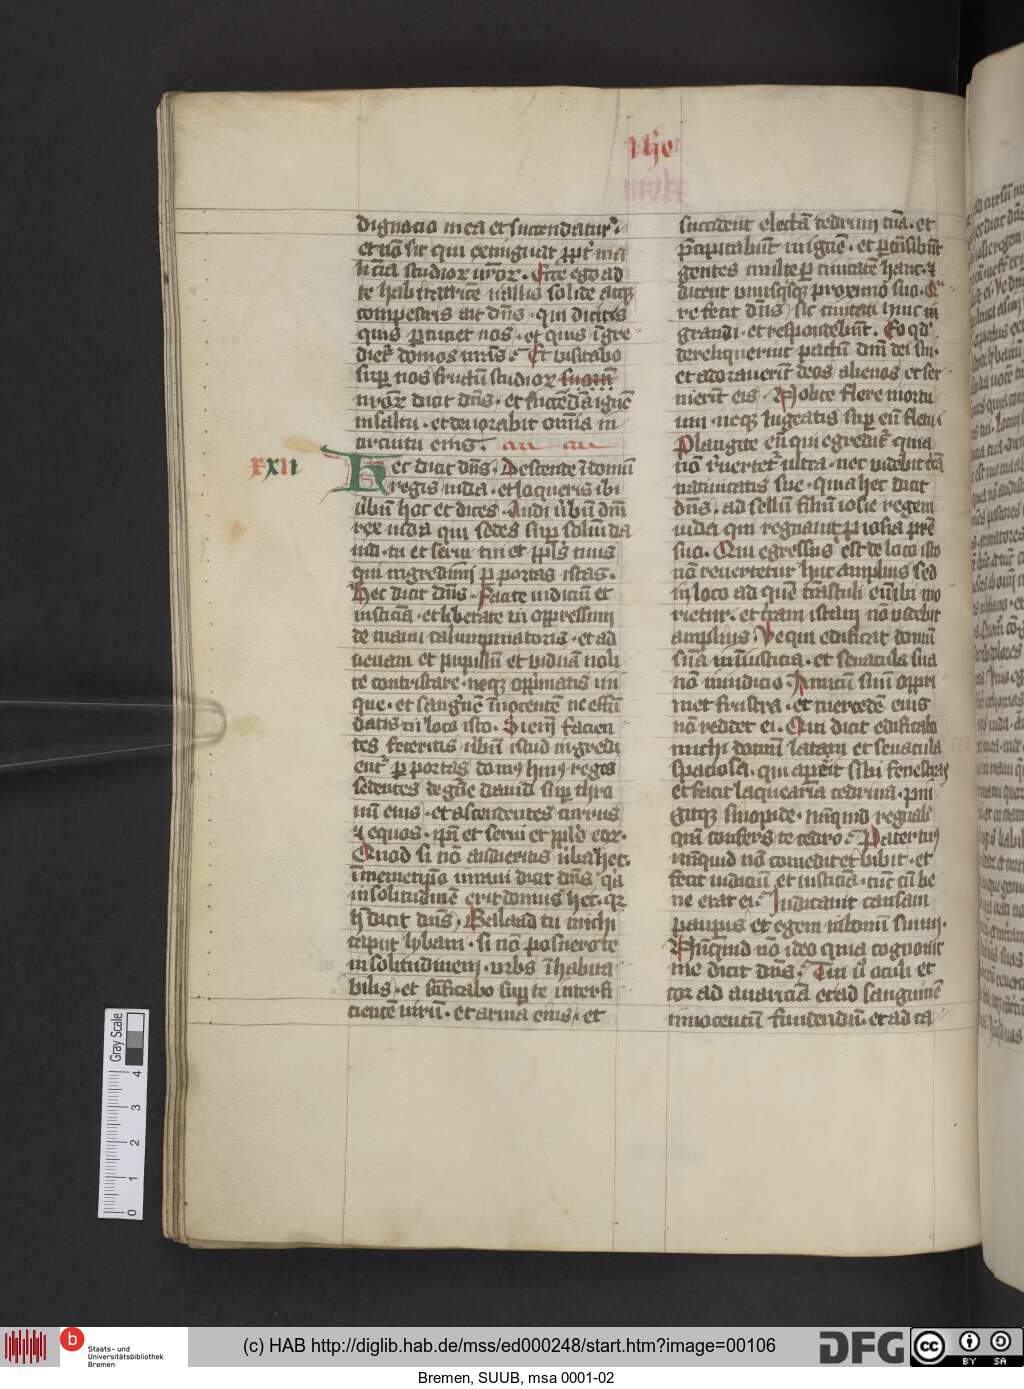 Ihe
dignacio mea et succendatur.
et nō sit qui extinguat ꝓpt̄ ma
liciā studioꝝ ur̄oꝝ. Ecce ego ad
te habitatricē uallis solide atqꝫ
compestris ait dn̄s. qui dicitis
quis ꝑcuciet nos. et quis īgre
diet᷑ domos nr̄as. Et uisitabo
suꝑ uos fructū studioꝝ suoꝝ
ur̄oꝝ dicit dn̄s. et succēdā ignē
in saltu. et deuorabit omīa in
circuitu eius.
XXII
Hec dicit dn̄s. Descende ī domū
regis iuda. et loqueris ibi
ūbū hoc et dices. Audi ūbū dn̄i
rex iuda qui sedes suꝑ soliū da
uid. tu et serui tui et ppl̄s tuus
qui ingredimī ꝑ portas istas.
Hec dicit dn̄s. Facite iudiciū et
iusticiā. et liberate ui oppressum
de manu calumpniatoris. et ad
uenam et pupillū et viduā noli
te contristare. neqꝫ opp̄matis ini
que. et sanguē īnocentē ne effū
datis in loco isto. Si enī facien
tes feceritis ūbū istud ingredi
ent᷑ ꝑ portas domꝰ huiꝰ reges
sedentes de gn̄e dauid suꝑ thro
nū eius. et ascendentes currus
et equos. ip̄i et serui et ppl̄s eoꝝ.
Quod si nō audieritis ūba hec.
ī memetip̄o iuraui dicit dn̄s. qa
in solitudinē erit domus hec. qꝛ
h̄ dicit dn̄s. Galaad tu michi
caput lybani. si nō posuero te
in solitudinem. urbs īhabita
bilis. et sc̄ificabo suꝑ te interfi
cientē uirū. et arma eius. et
succident electā cedrum tuā. et
p̄cipitabūt in ignē. et ꝑtn̄sibūt
gentes multe ꝑ ciuitatē hanc. et
dicent vnusqsqꝫ proximo suo. Q
re fecit dn̄s sic ciuitati huic
grandi. et respondebūt. Eo qd
dereliquerint pactū dn̄i dei sui.
et adorauerīt deos alienos et ser
uierīt eis. Nolite flere mortu
um. neqꝫ lugeatis suꝑ eū fletu.
Plangite eū qui egredit᷑ quia
nō reuertet᷑ ultra. nec videbit t̄rā
natiuitatis sue. quia hec dicit
dn̄s. ad sellū filiū iosie regem
iuda qui regnauit ꝑ iosia pr̄e
suo. Qui egressus est de loco isto
nō reuertetur huc amplius sed
in loco ad quē trāstuli eū ibi mo
rietur. et terram istam nō videbit
amplius. Ve qui edificat domū
suā in iusticia. et cenacula sua
nō in iudicio. Amicū suū oppri
met frustra. et mercedē eius
nō reddet ei. Qui dicit edificabo
michi domū latam et cenacula
spaciosa. qui aperit sibi fenestras
et facit laquearia cedrina. pni
gitqꝫ sinopide. nūquid regnabis
qm̄ confers te cedro. Pater tuꝰ
nūquid nō comedit et bibit. et
fecit iudiciū et iusticiā. tūc cū be
ne erat ei. Iudicauit causam
pauperis et egeni in bonū suum.
Nūquid nō ideo quia cognouit
me dicit dn̄s. Tui u̅ oculi et
cor ad auariciā et ad sanguinē
innocentū fundendū. et ad ca
Gray Scale
0 1 2 3 4
Staats- und
Universitätsbibliothek
Bremen
(c) HAB http://diglib.hab.de/mss/ed000248/start.htm?image=00106
DFG
cc BY SA
Bremen, SUUB, msa 0001-02